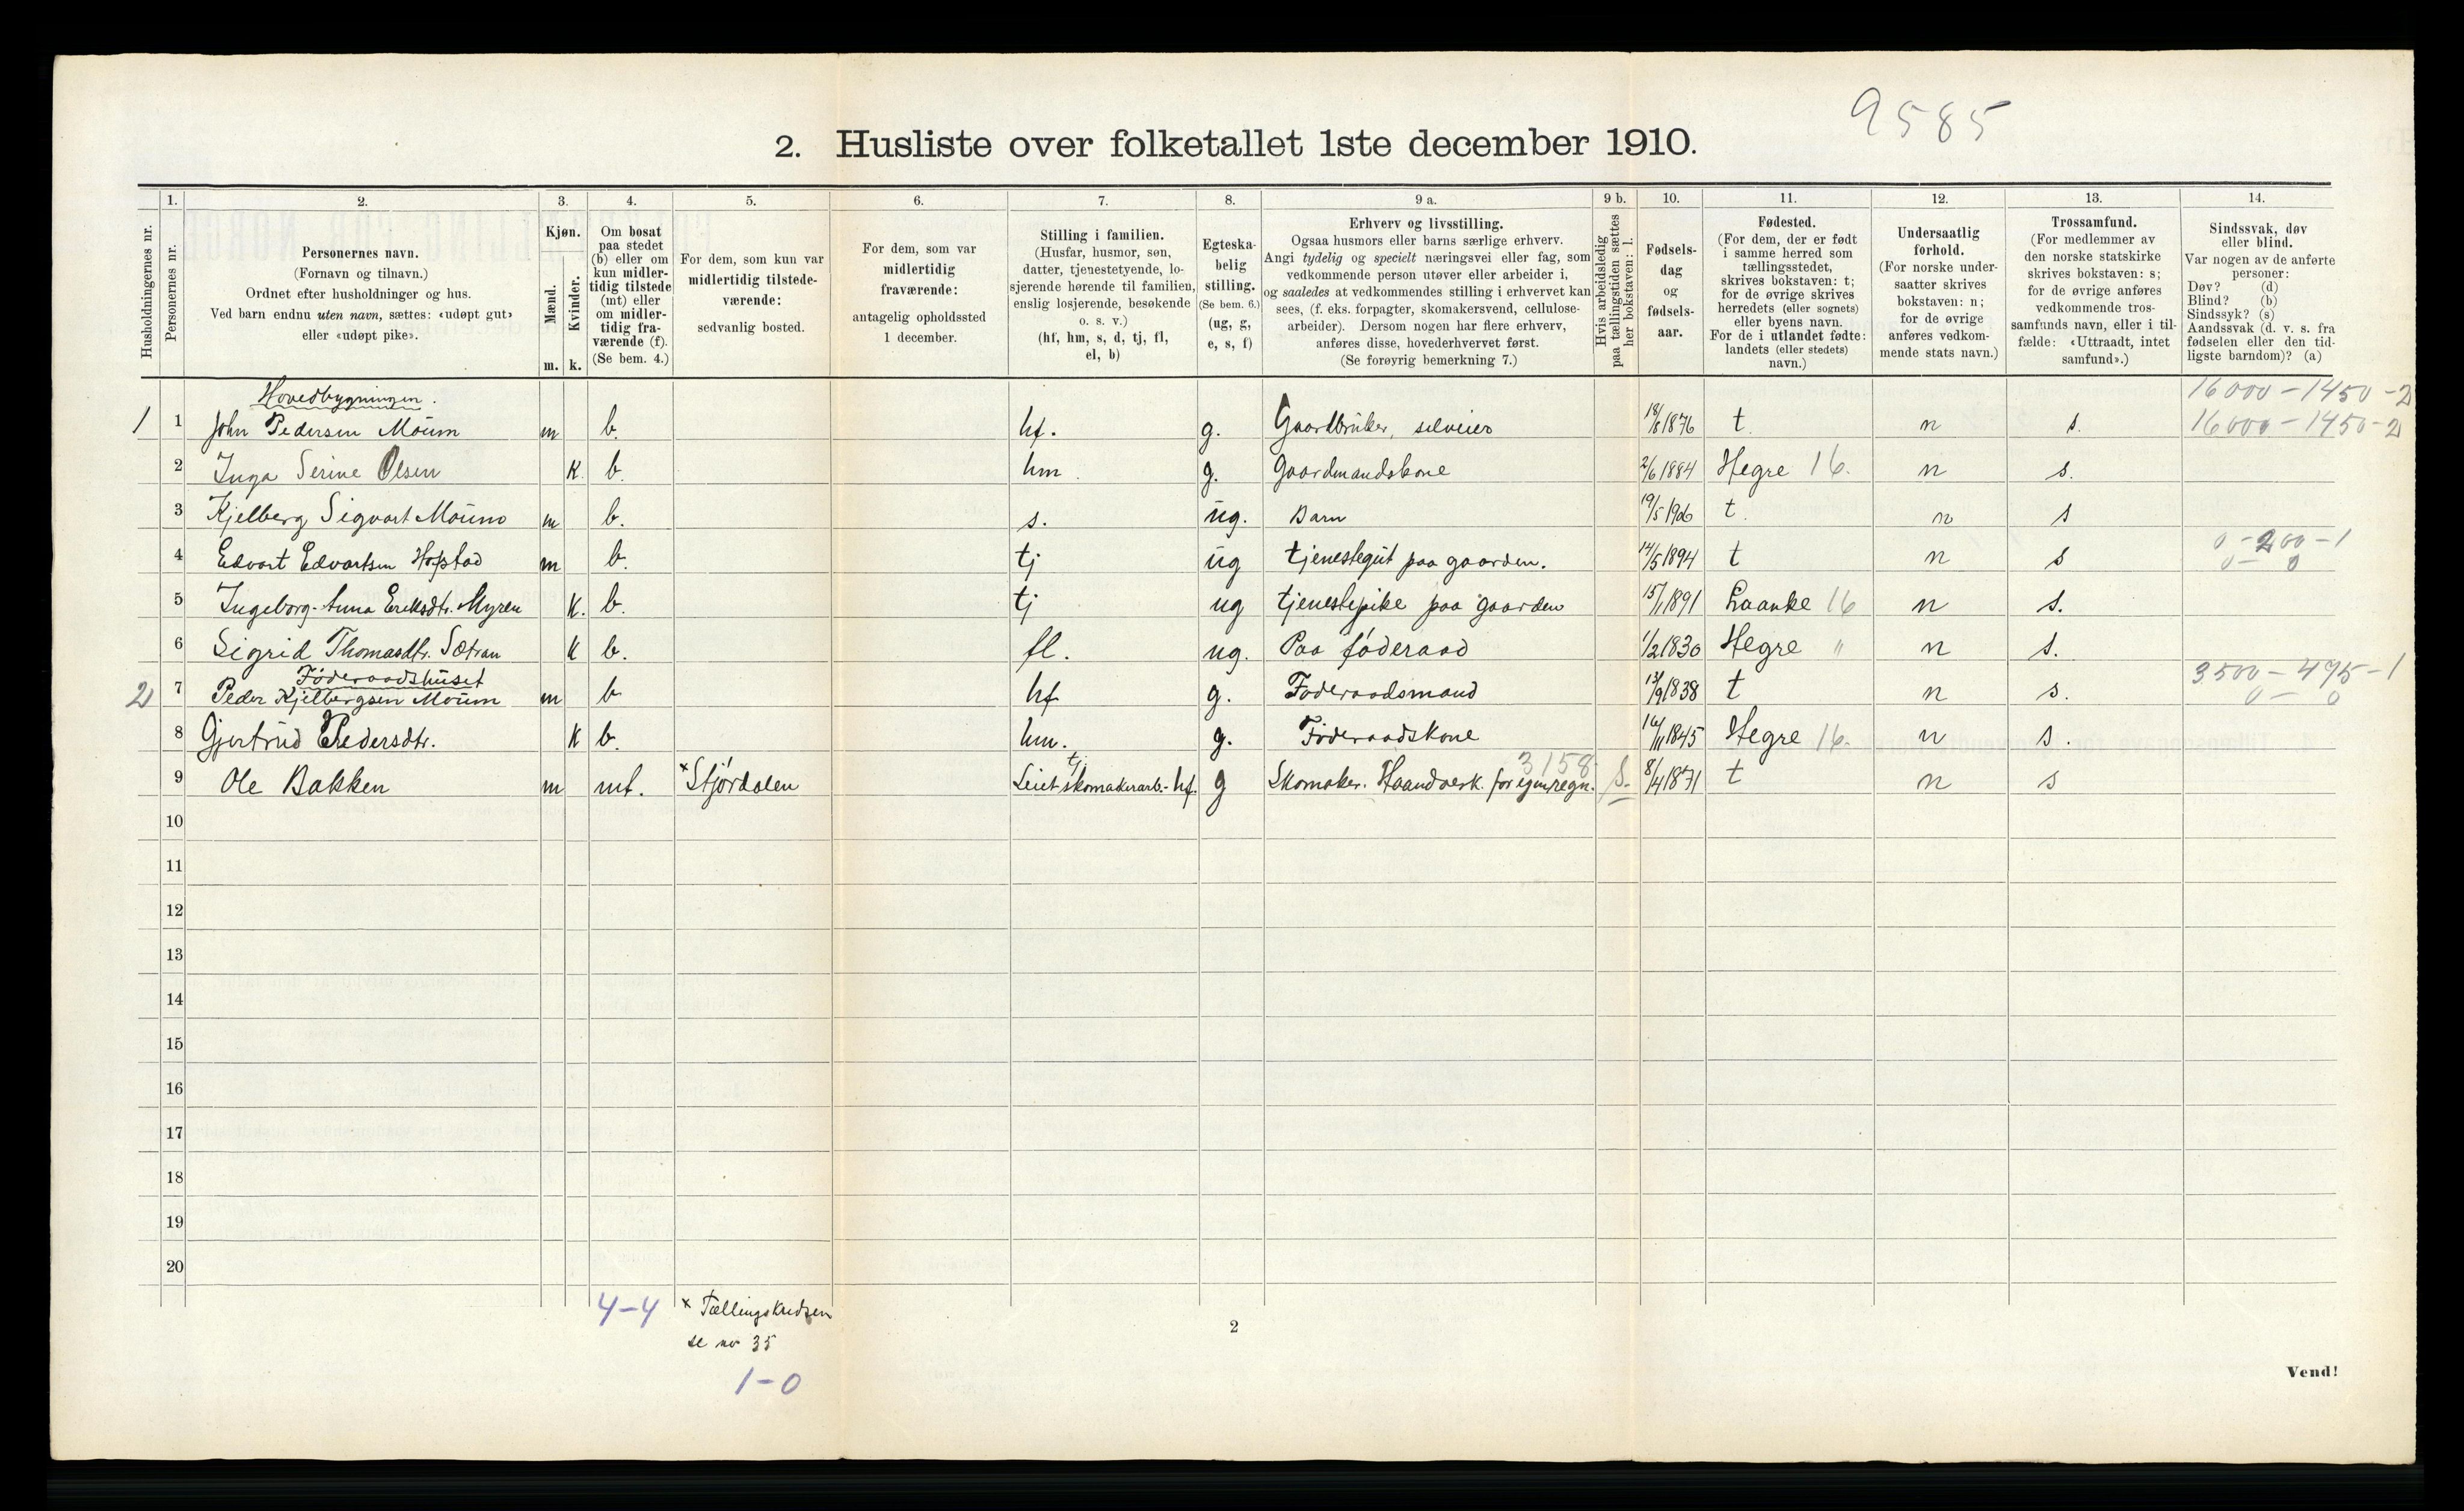 9585
2. Husliste over folketallet 1ste december 1910.
Husholdningernes nr.
1.
Personernes nr.
2.
Personernes navn.
(Fornavn og tilnavn.)
Ordnet efter husholdninger og hus.
Ved barn endnu uten navn, sættes: «udøpt gut»
eller «udøpt pike».
3.
Kjøn.
Mænd.
Kvinder.
m. k.
4.
Om bosat
paa stedet
(b) eller om
kun midler-
tidig tilstede
(mt) eller
om midler-
tidig fra-
værende (f).
(Se bem. 4.)
5.
For dem, som kun var
midlertidig tilstede-
værende:
sedvanlig bosted.
6.
For dem, som var
midlertidig
fraværende:
antagelig opholdssted
1 december.
7.
Stilling i familien.
(Husfar, husmor, søn,
datter, tjenestetyende, lo-
sjerende hørende til familien,
enslig losjerende, besøkende
o. s. v.)
(hf, hm, s, d, tj, fl,
el, b)
8.
Egteska-
belig
stilling.
(Se bem. 6.)
(ug, g,
e, s, f)
9 a.
Erhverv og livsstilling.
Ogsaa husmors eller barns særlige erhverv.
Angi tydelig og specielt næringsvei eller fag, som
vedkommende person utøver eller arbeider i,
og saaledes at vedkommendes stilling i erhvervet kan
sees, (f. eks. forpagter, skomakersvend, cellulose-
arbeider). Dersom nogen har flere erhverv,
anføres disse, hovederhvervet først.
(Se forøvrig bemerkning 7.)
9 b.
Hvis arbeidsledig
paa tællingstiden sættes
her bokstaven: l.
10.
Fødsels-
dag
og
fødsels-
aar.
11.
Fødested.
(For dem, der er født
i samme herred som
tællingsstedet,
skrives bokstaven: t;
for de øvrige skrives
herredets (eller sognets)
eller byens navn.
For de i utlandet fødte:
landets (eller stedets)
navn.)
12.
Undersaatlig
forhold.
(For norske under-
saatter skrives
bokstaven: n;
for de øvrige
anføres vedkom-
mende stats navn.)
13.
Trossamfund.
(For medlemmer av
den norske statskirke
skrives bokstaven: s;
for de øvrige anføres
vedkommende tros-
samfunds navn, eller i til-
fælde: «Uttraadt, intet
samfund».)
14.
Sindssvak, døv
eller blind.
Var nogen av de anførte
personer:
Døv? (d)
Blind? (b)
Sindssyk? (s)
Aandssvak (d. v. s. fra
fødselen eller den tid-
ligste barndom)? (a)
Hovedbygningen. 16000-1450-2
1 1 John Pedersen Moum m b. hf. g. Gaardbruker, selveier 18/8 1876 t n s. 16000-1450-2
2 Inga Serine Olsen K. b. hm g. Gaardmandskone 2/6 1884 Hegre 16. n s.
3 Kjelberg Sigvart Moum m b. s. ug. Barn 19/5 1906 t n s
0-200-1
4 Edvart Edvartsen Hofstad m b. tj ug tjenestegut paa gaarden. 14/5 1894 t n s 0- 0
5 Ingeborg-Anna Eriksdtr. Myren K. b. tj ug tjenestepike paa gaarden 15/1 1891 Laanke 16 n s.
6 Sigrid Thomasdtr. Sætran K b. fl. ug. Paa føderaad 1/2 1830 Hegre " n s.
Føderaadshuset 3500-495-1
2 7 Peder Kjelbergsen Moum m b hf g. Føderaadsmand 13/9 1838 t n s. 0- 0
8 Gjertrud Pedersdtr. K b. hm. g. Føderaadskone 16/11 1845 Hegre 16. n s.
tj 3158
9 Ole Bakken m mt. × Stjørdalen Leiet skomakerarb.- hf. g Skomaker. Haandverk. for egen regn. S. 8/4 1871 t n s
10
11
12
13
14
15
16
17
18
19
20
4-4 × Tællingskredsen
se no 35
1-0
2
Vend!